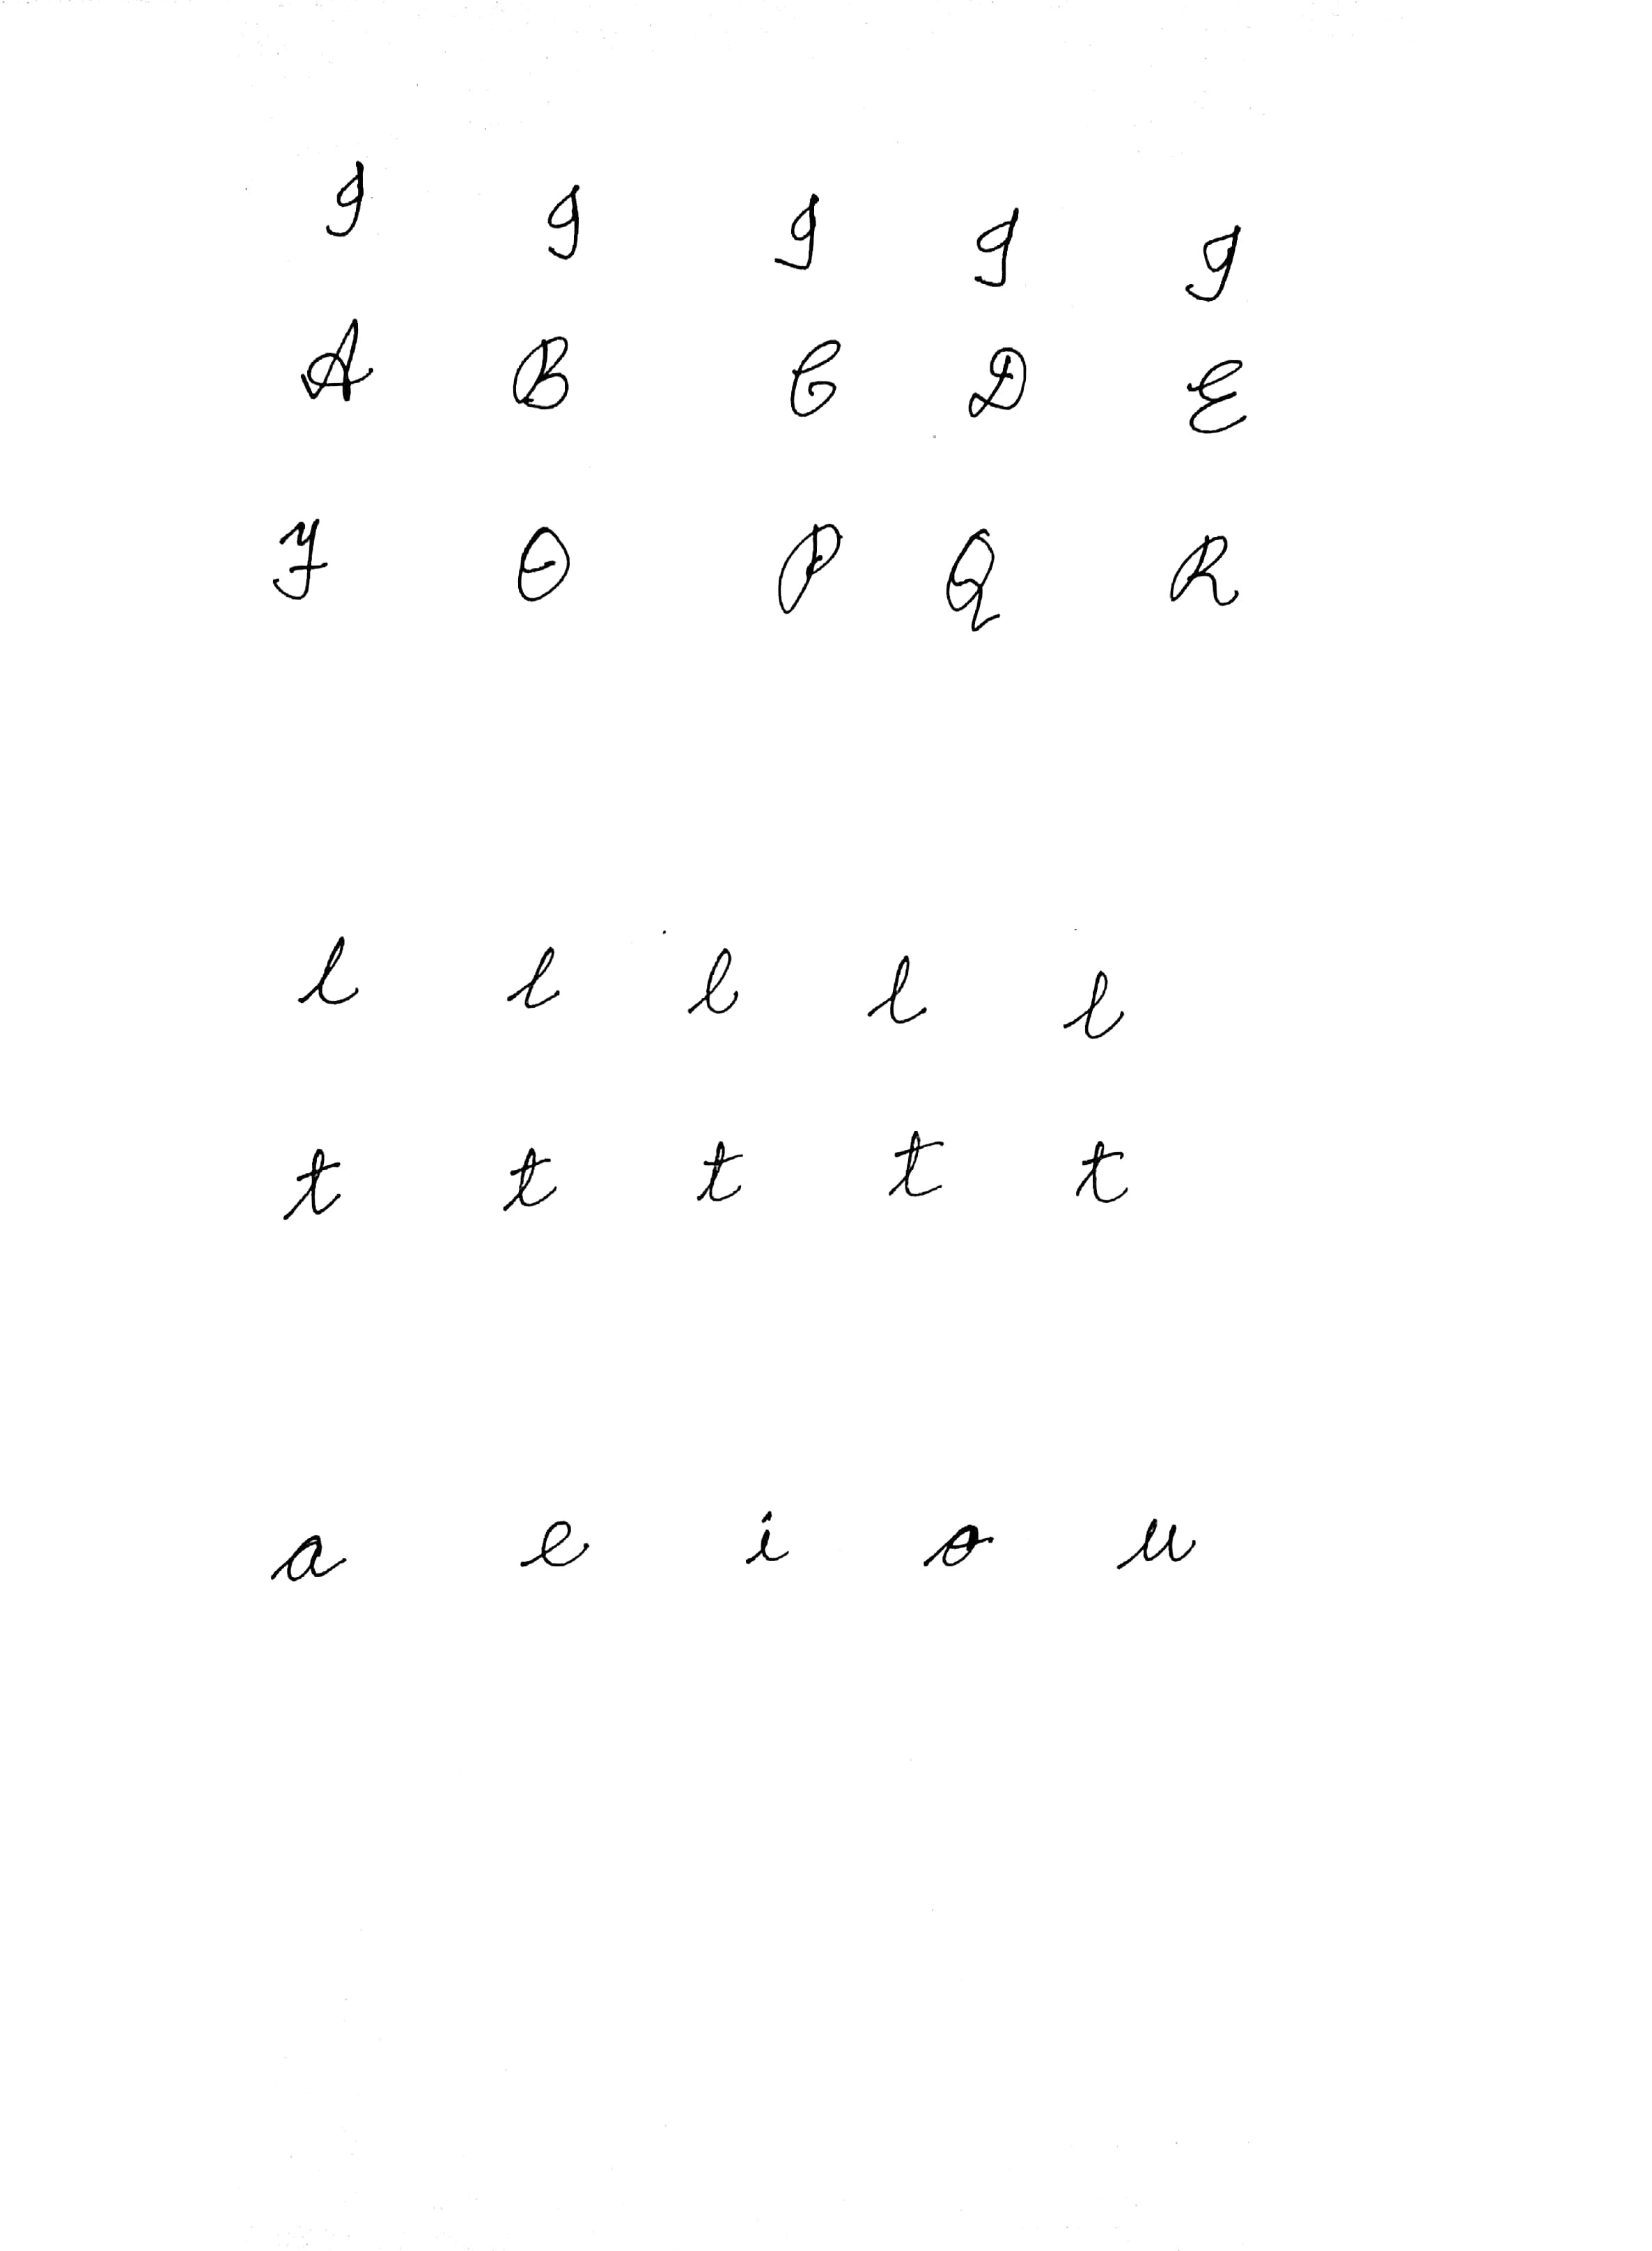 g g g g g
A B C D E
Y O P Q R
l l l l l
t t t t t
a e i o u